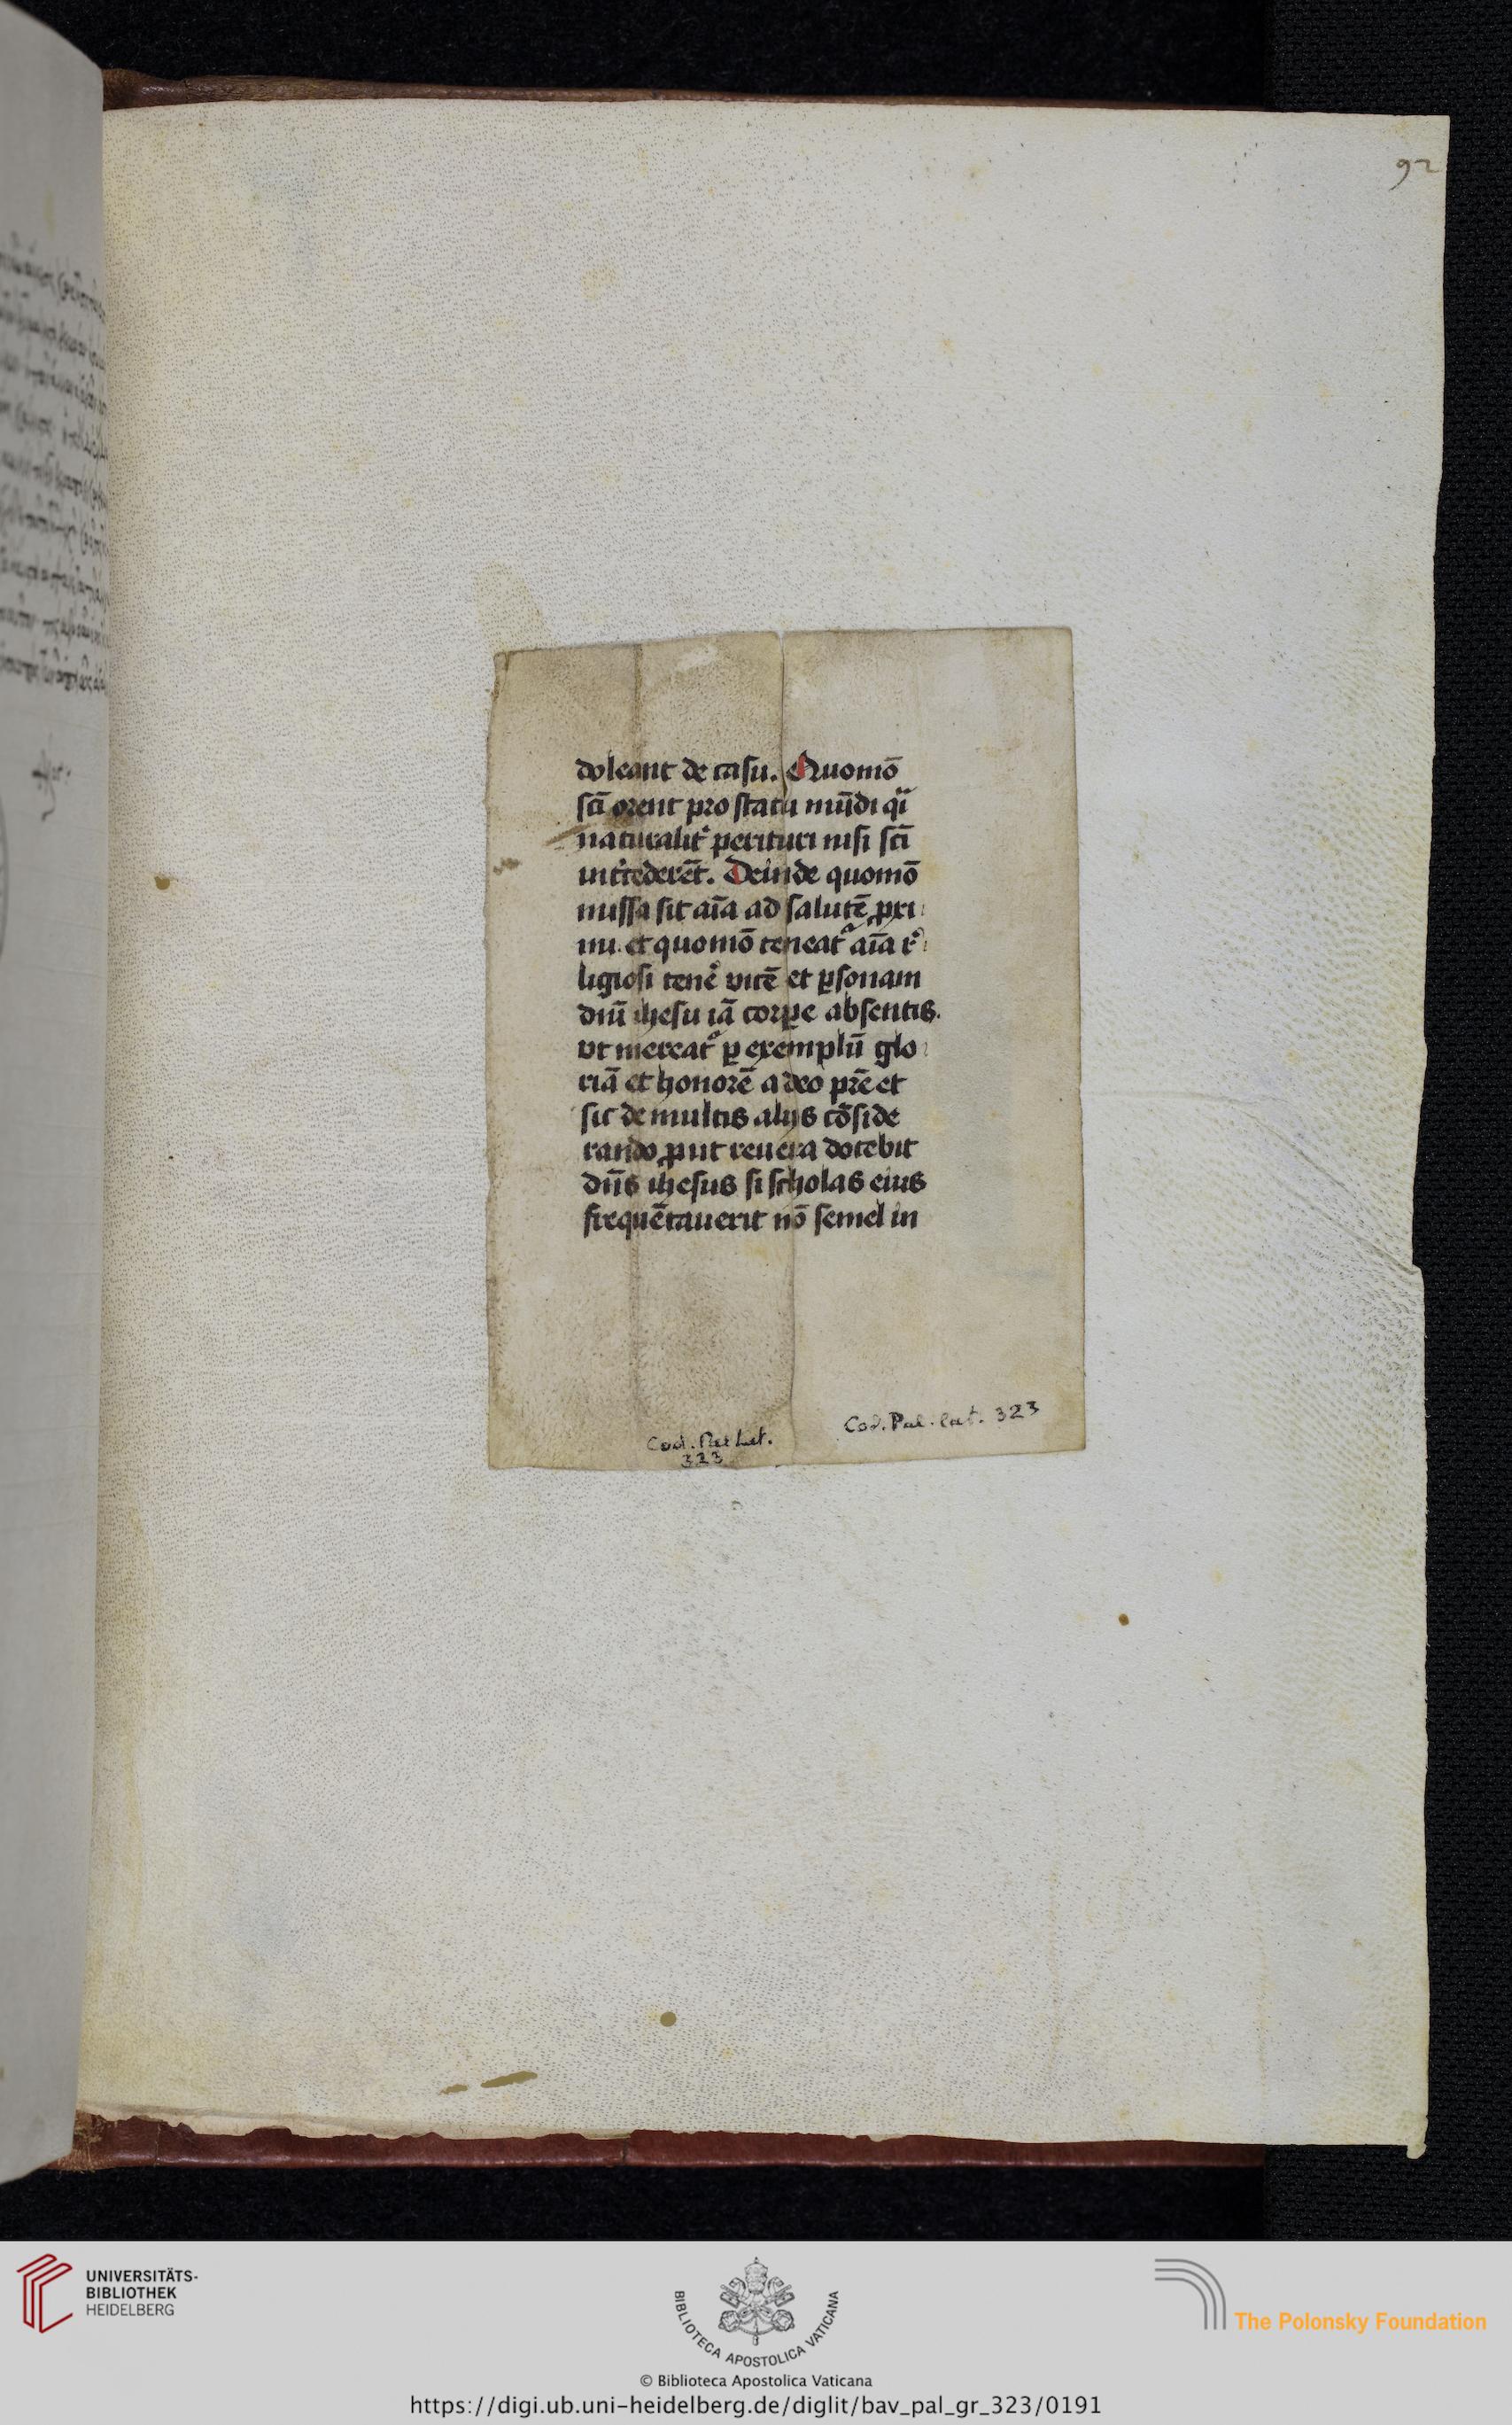 92
doleant de casu. Quomō
sc̄i orent pro statu mūdi qͥi
naturalit᷑ perituri nisi sc̄i
int᷑cederēt. Deinde quomō
missa sit aīa ad salutē ꝓxi
mi. et quomō teneat᷑ aīa r᷑
ligiosi tene᷑ vicē et ꝑsonam
dn̄i ihesu iā corꝑe absentis.
vt mereat᷑ ꝑ exemplū glo
riā et honorē a deo pr̄e et
sic de multis alijs cōside
rando ꝓut reuera docebit
dn̄s ihesus si scholas eius
frequētauerit nō semel in
Cod. Pal. lat. 323
Cod. Pal. lat.
323
UNIVERSITÄTS-
BIBLIOTHEK
HEIDELBERG
BIBLIOTECA APOSTOLICA VATICANA
The Polonsky Foundation
© Biblioteca Apostolica Vaticana
https://digi.ub.uni-heidelberg.de/diglit/bav_pal_gr_323/0191